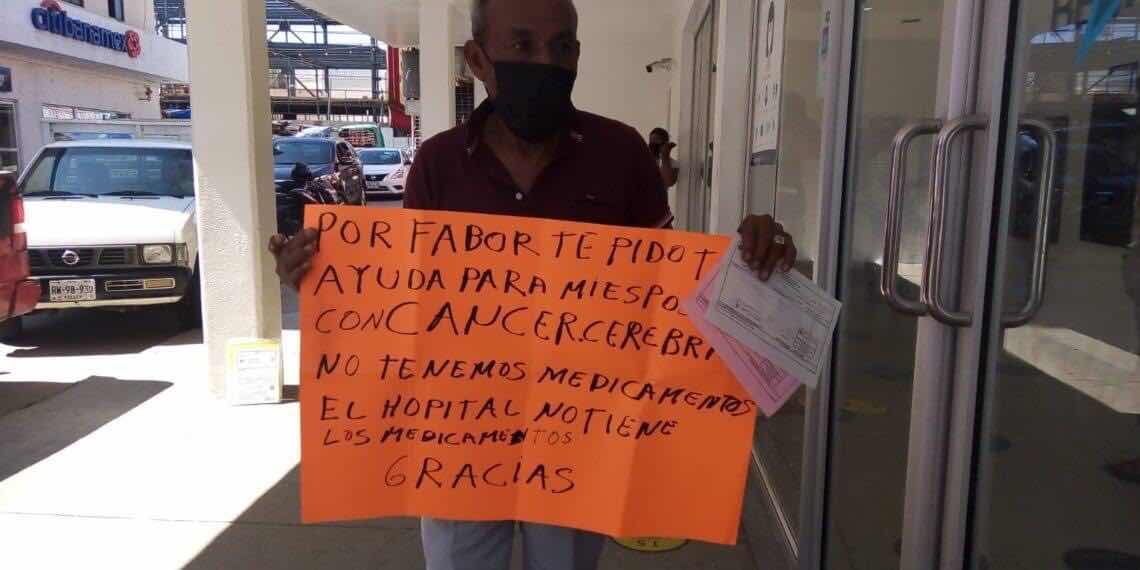 citibanamex
POR FABOR TE PIDO T
AYUDA PARA MI ESPOS
CON CANCER.CEREBR
NO TENEMOS MEDICAMENTOS
EL HOPITAL NO TIENE
LOS MEDICAMENTOS
GRACIAS